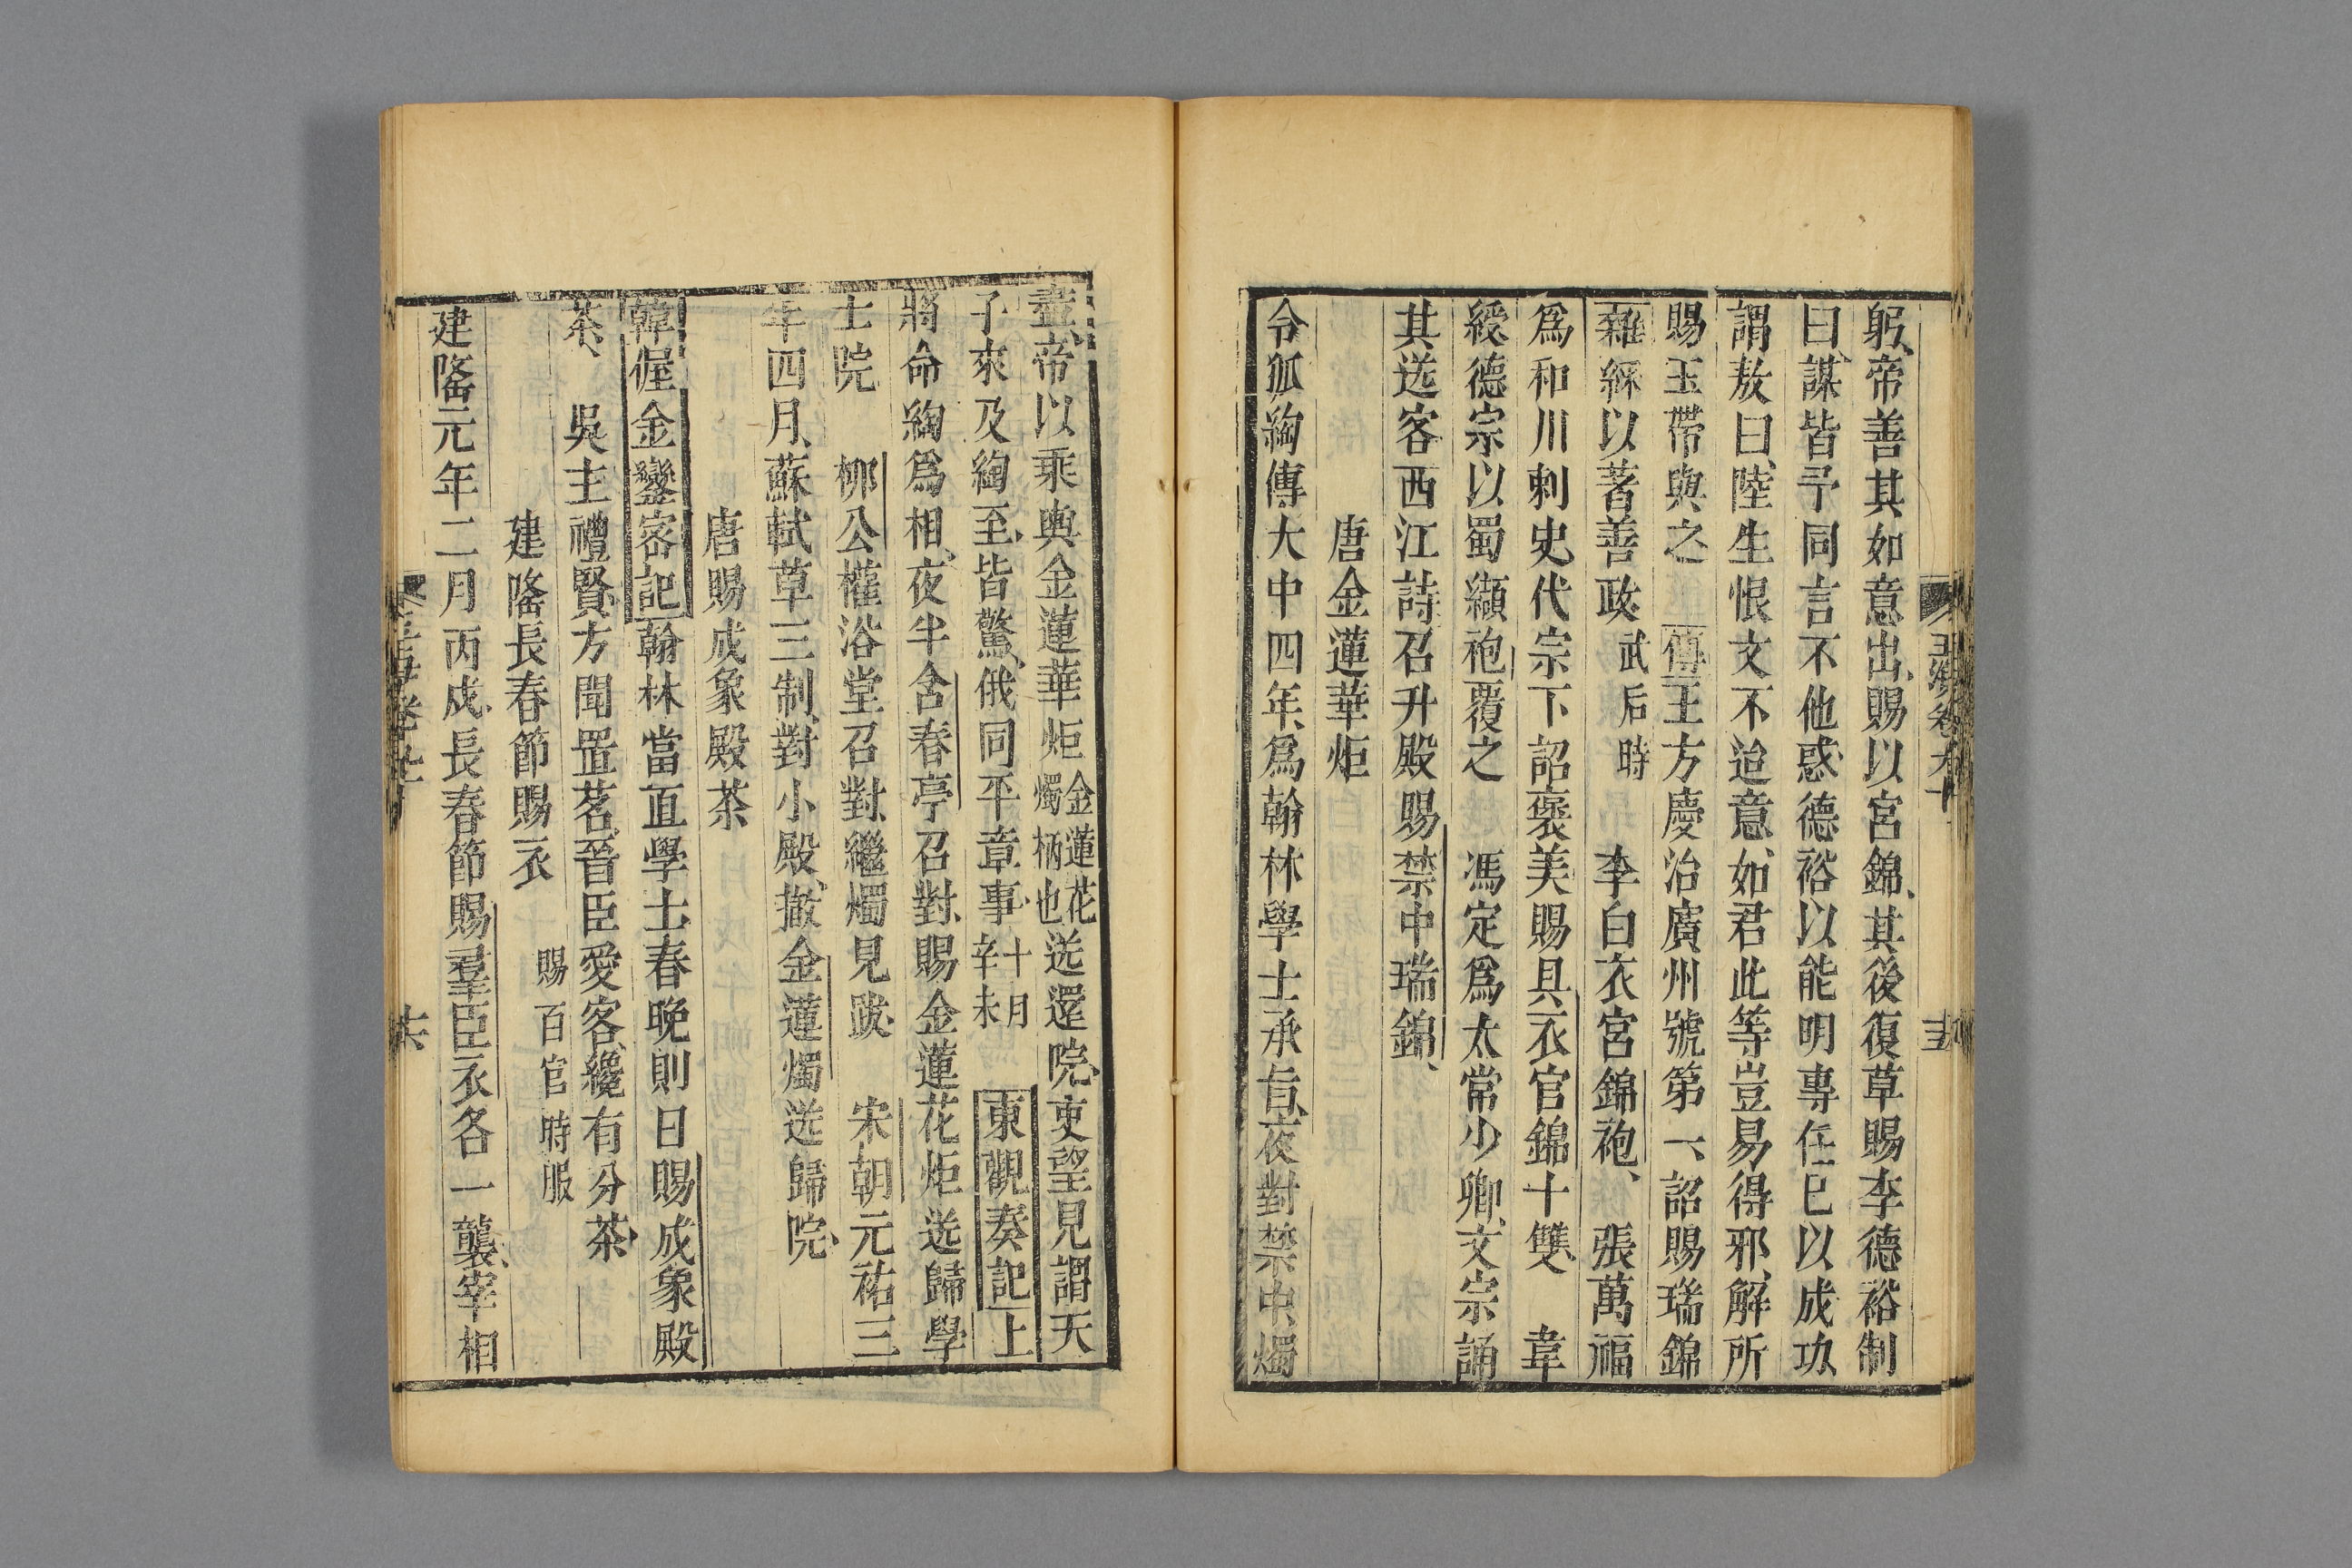 躬、帝善其如意出、賜以宮錦、其後復草賜李德裕制
曰、謀皆予同、言不他惑、德裕以能明專任已以成功、
謂敖曰、陸生恨文不迨意、如君此等豈易得邪、解所
賜玉帶與之 傳 王方慶治廣州號第一、詔賜瑞錦
雜綵以著善政 武后時 李白衣宮錦袍、 張萬福
爲和川刺史、代宗下詔褒美、賜具衣官錦十雙、 韋
綬德宗以蜀纈袍覆之 馮定爲太常少卿、文宗誦
其送客西江詩、召升殿賜禁中瑞錦、
唐金蓮華炬
令狐綯傳大中四年、爲翰林學士承旨、夜對禁中、燭
盡、帝以乘輿金蓮華炬 金蓮花燭柄也 送還院、吏望見謂天
子來、及綯至、皆驚、俄同平章事、 十月辛未 東觀奏記 上
將命綯爲相、夜半含春亭召對、賜金蓮花炬送歸學
士院 柳公權浴堂召對、繼燭見跋、 宋朝元祐三
年四月、蘇軾草三制、對小殿、撤金蓮燭送歸院、
唐賜成象殿茶
韓偓金鑾密記 翰林當直學士春晚則日賜成象殿
茶、 吳主禮賢、方聞置茗、晉臣愛客、纔有分茶、
建隆長春節賜衣 賜百官時服
建隆元年二月丙戌、長春節賜羣臣衣各一襲、宰相